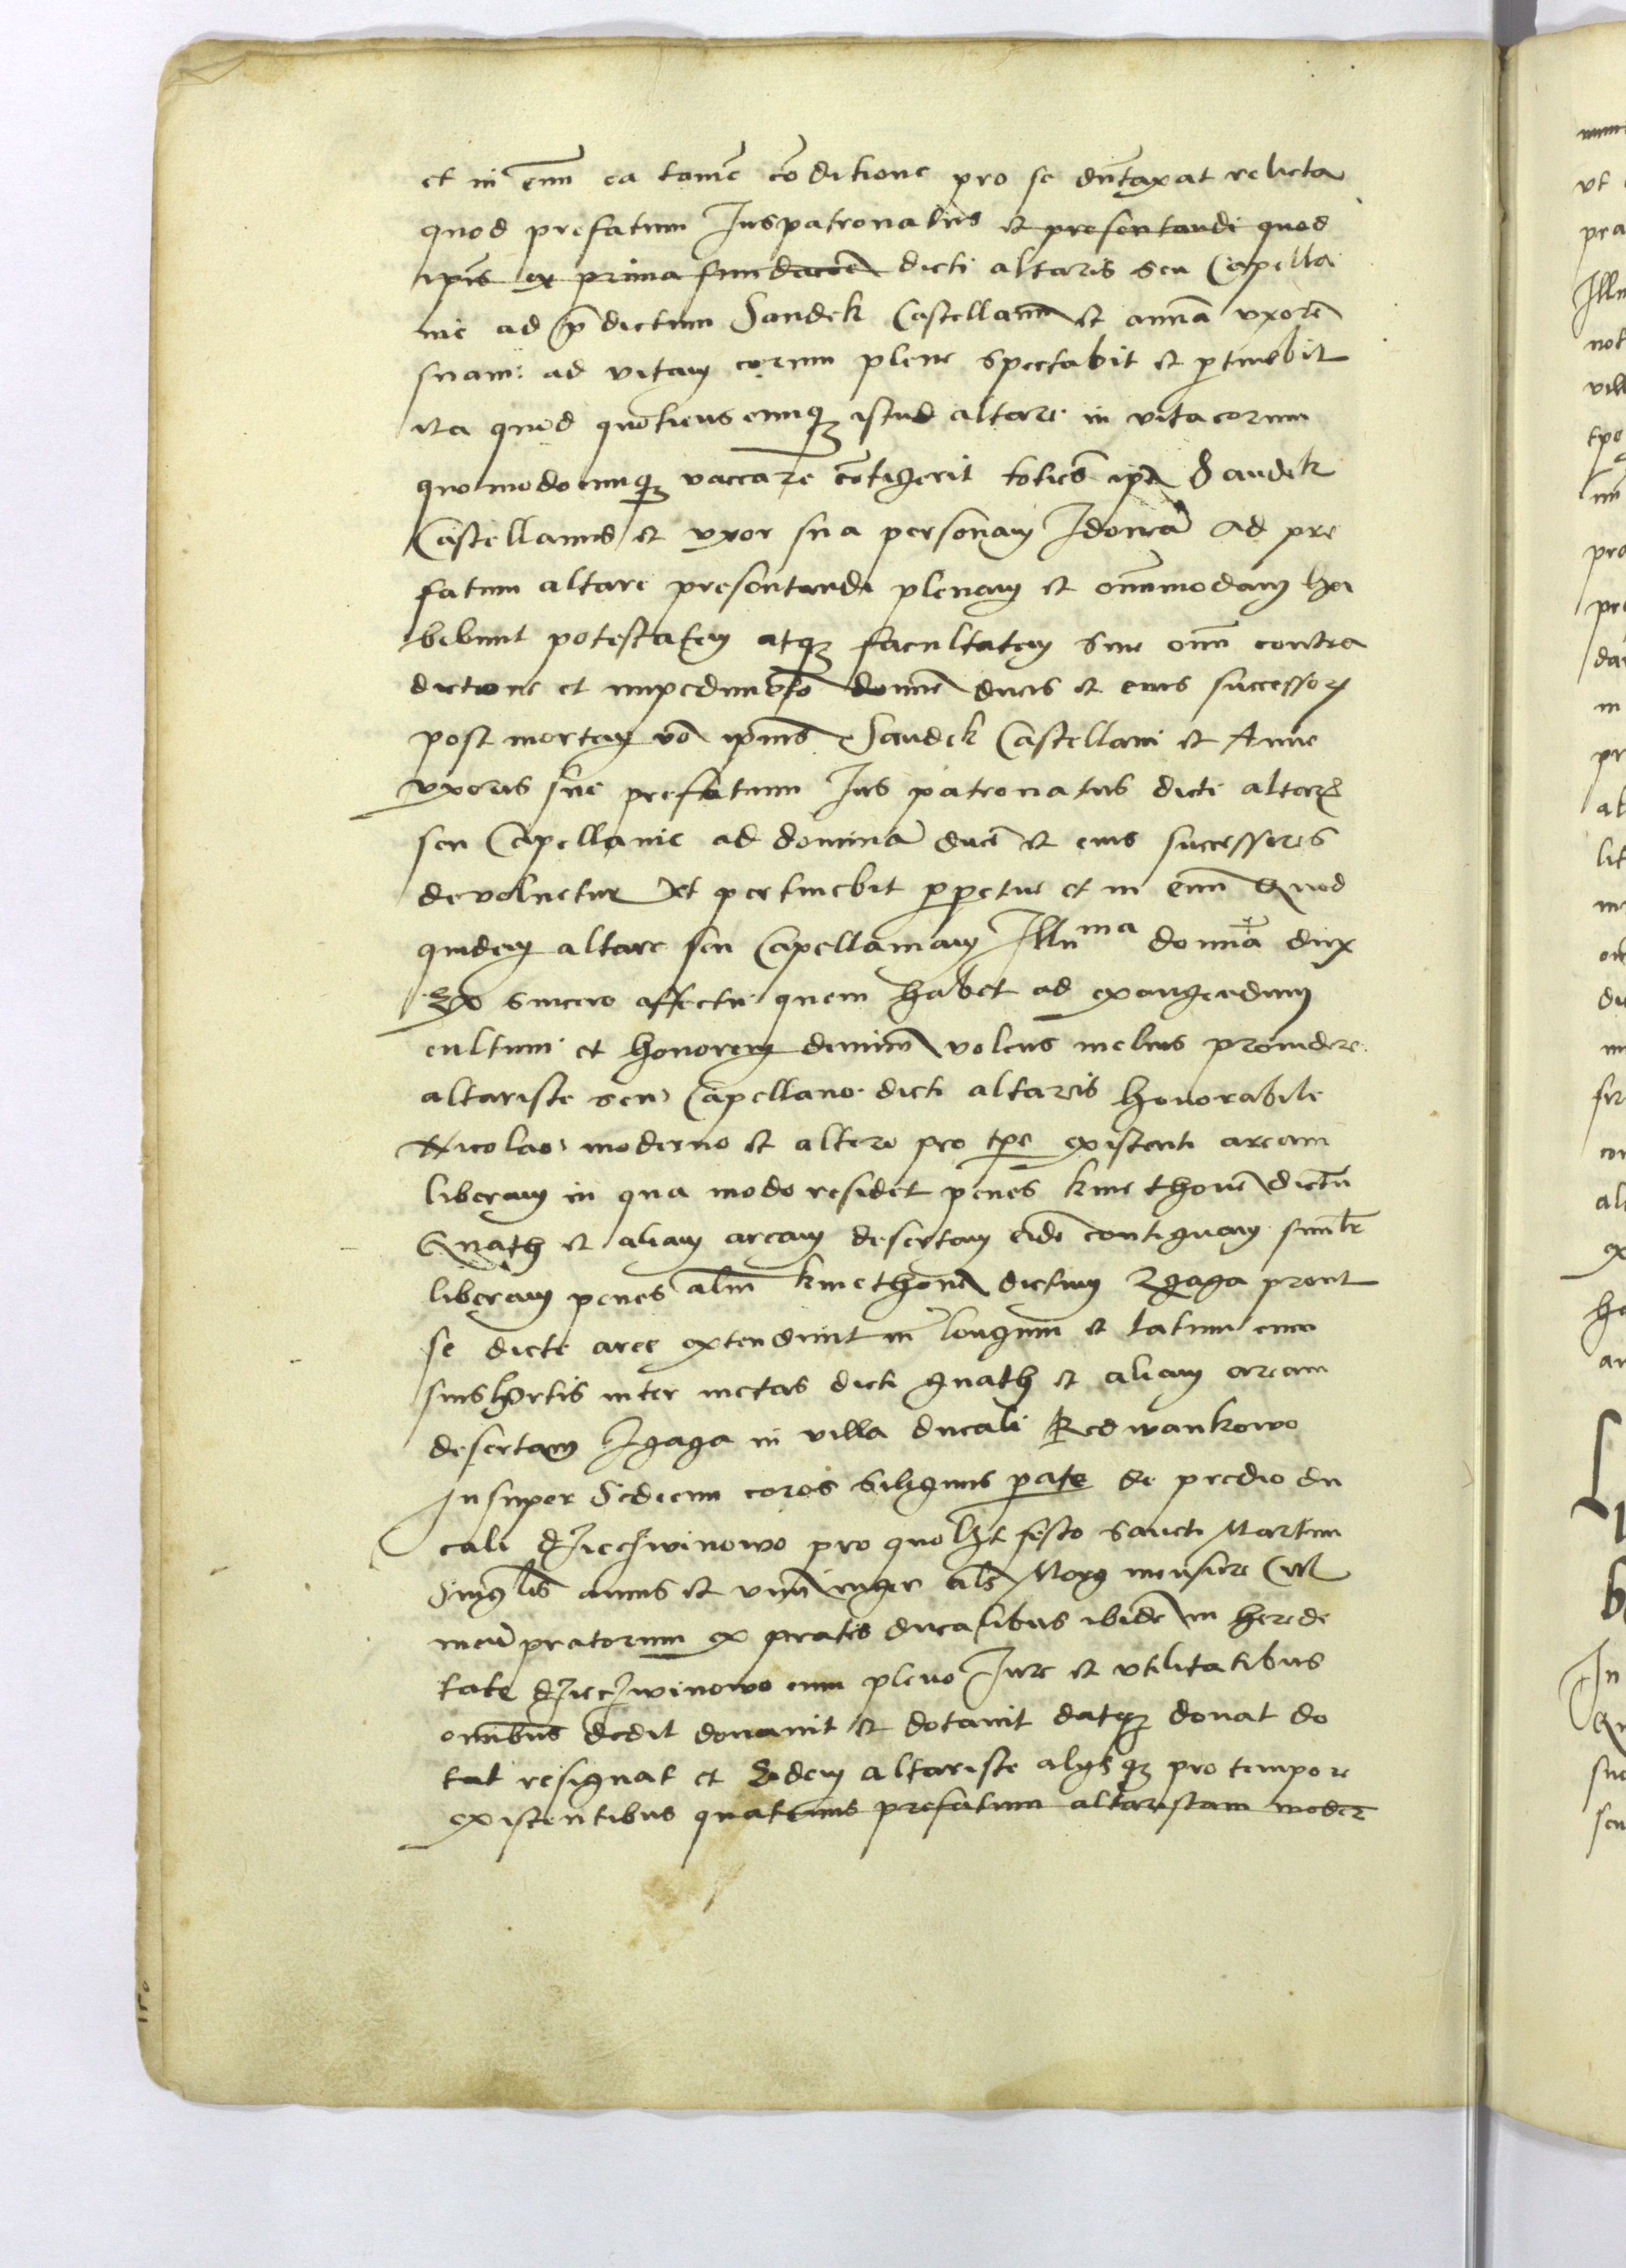 et in eum̄ ea tamē cōditione pro se dūtaxat relicta
quod prefatum Juspatronatus et presentandi quod
ip̄is ex prima fundacōe dicti altaris seu Capella
nie ad p̄dictum Sandek Castellanū et annā vxorē
suam: ad vitam eorum plene spectabit et ptinebit
ita quod quotienscunq; istud altare in vita eorum
quomodocunq; vaccare cōtigerit toties ip̄e Sandek
Castellanus et vxor sua personam Idoneā ad pre
fatum altare presentandi plenam et om̄imodam ha
bebunt potestatem atq; facultatem sine om̄i contra
dictione et impedimēto domīe ducis et eius successor
post mortem vō ipīus Sandek Castellani et Anne
vxoris sue prefatum Jus patronatus dicti altar
seu Capellanie ad dominā ducē et eius successores
devoluetur et pertinebit ppetue et in eum̄ Quod
quidem altare seu Capellaniam Illuma domīa dux
Ex sincero affectu quem habet ad exaugendum
cultum et honorem diuinū volens melius prouidere
altariste seu Capellano dicti altaris honorabile
Nicolao moderno et altero pro tpe existenti aream
liberam in qua modo residet penes kmethonē dictū
Gnath et aliam aream desertam eidē contiguam simlr
liberam penes aliū kmethonē dictum Zgaga prout
se dicte aree extendunt in longum et latum cum
suis hortis inter metas dicti gnath et aliam aream
desertam Zgaga in villa ducali Redwankowo
Insuper Sedecim coros siliginis parate de predio du
cali dzieczwinowo pro quolZt festo sancti Martini
Singlis annis et vnū iuger als Morg mensure Cul
men pratorum ex pratis ducalibus ibidē in herede
tate dzieczwinowo cum pleno Jure et vtilitatibus
omībus dedit donauit et dotauit datq; donat do
tat resignat et Eidem altariste alysq; pro tempore
existentibus quatenus prefatum altaristam moder